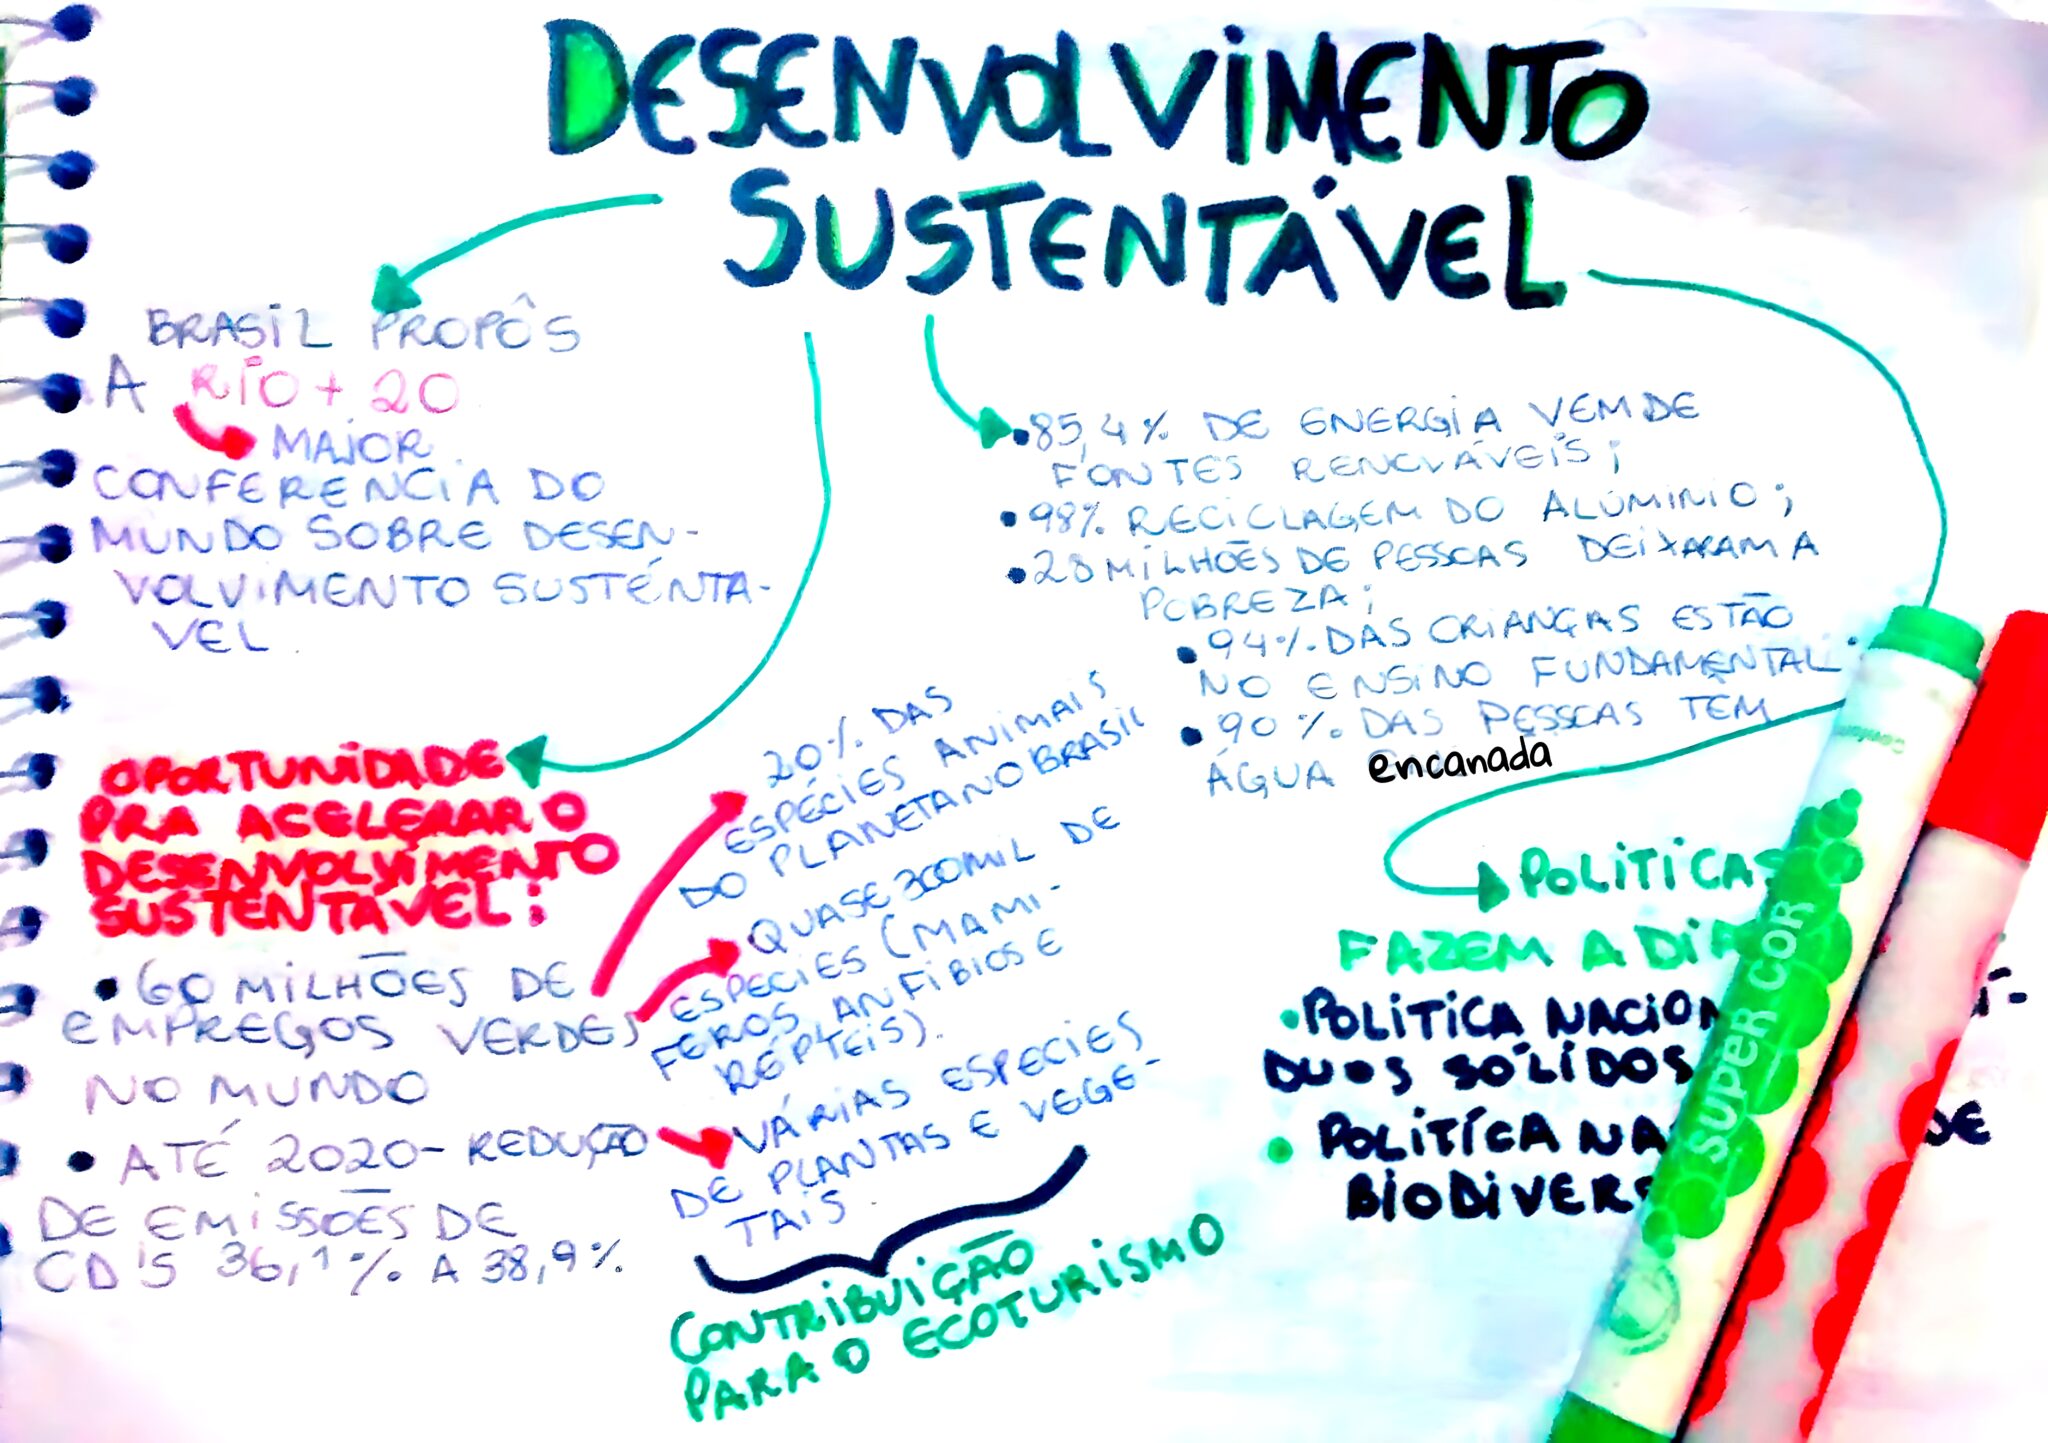 DESENVOLVIMENTO
SUSTENTÁVEL
BRASIL PROPÔS
A RIO + 20
MAIOR
CONFERENCIA DO
MUNDO SOBRE DESEN-
VOLVIMENTO SUSTENTÁ-
VEL.
• 85,4% DE ENERGIA VEM DE
FONTES RENOVÁVEIS;
• 98% RECICLAGEM DO ALUMINIO;
• 28 MILHÕES DE PESSOAS DEIXARAM A
POBREZA;
• 94% DAS CRIANÇAS ESTÃO
NO ENSINO FUNDAMENTAL;
• 90% DAS PESSOAS TÊM
ÁGUA encanada
OPORTUNIDADE
PRA ACELERAR O
DESENVOLVIMENTO
SUSTENTÁVEL:
• 60 MILHÕES DE
EMPREGOS VERDES
NO MUNDO
• ATÉ 2020 - REDUÇÃO
DE EMISSÕES DE
CD'S 36,1% A 38,9%
20% DAS
ESPÉCIES ANIMAIS
DO PLANETA NO BRASIL
QUASE 300 MIL DE
ESPECIES (MAMI-
FEROS, ANFIBIOS E
RÉPTEIS).
VÁRIAS ESPECIES
DE PLANTAS E VEGE-
TAIS.
CONTRIBUIÇÃO
PARA O ECOTURISMO
POLITICAS
FAZEM A DIF
• POLITICA NACION
DUOS SÓLIDOS
• POLITÍCA NA DE
BIODIVERS
SUPER COR